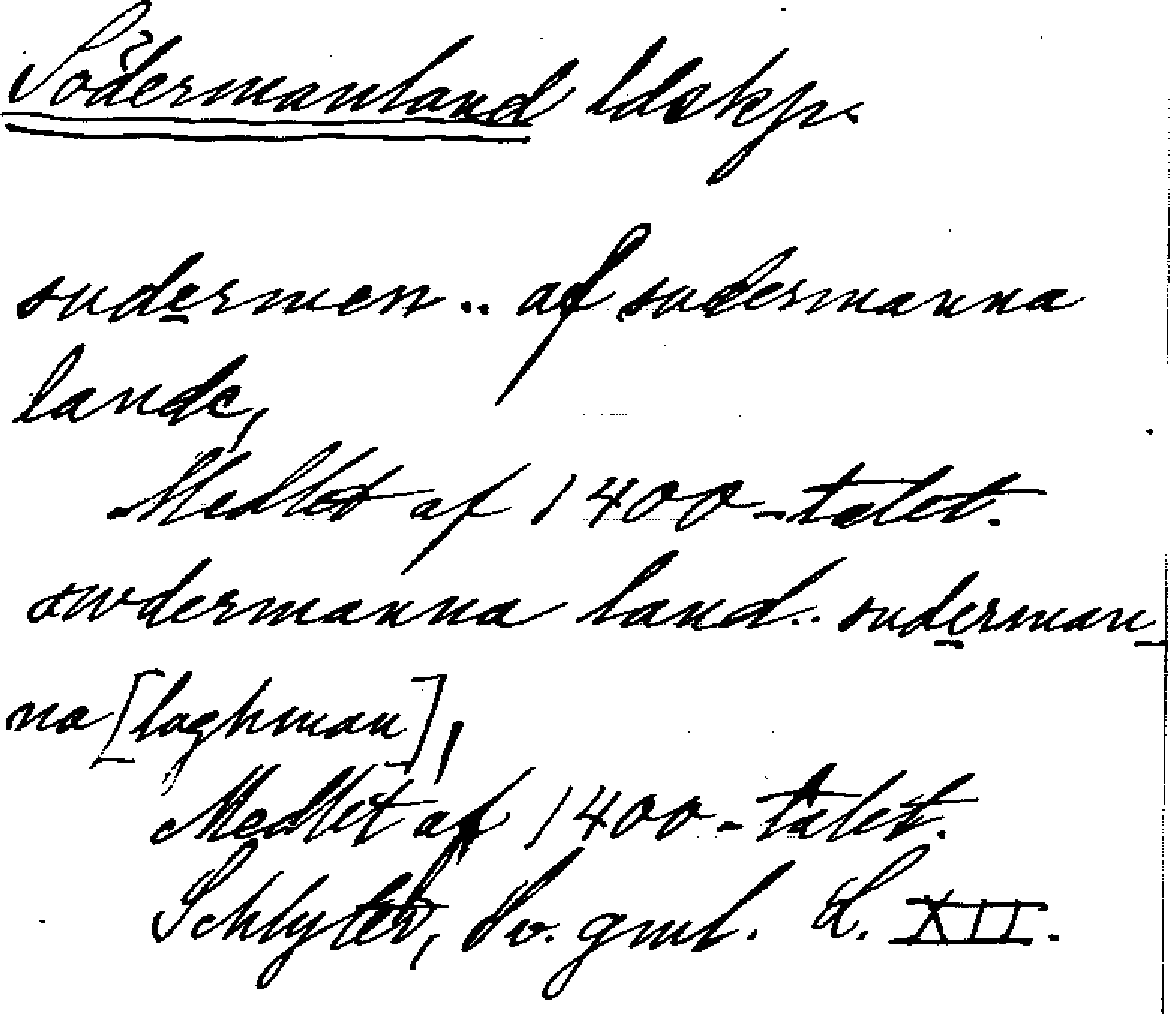 Södermanland ldskp.
sudermen .. af sudermanna
lande,
Medlet af 1400-talet.
swdermanna land.. suderman
na [laghman],
Medlet af 1400-talet.
Schlyter, Sv. gml. L. XII.